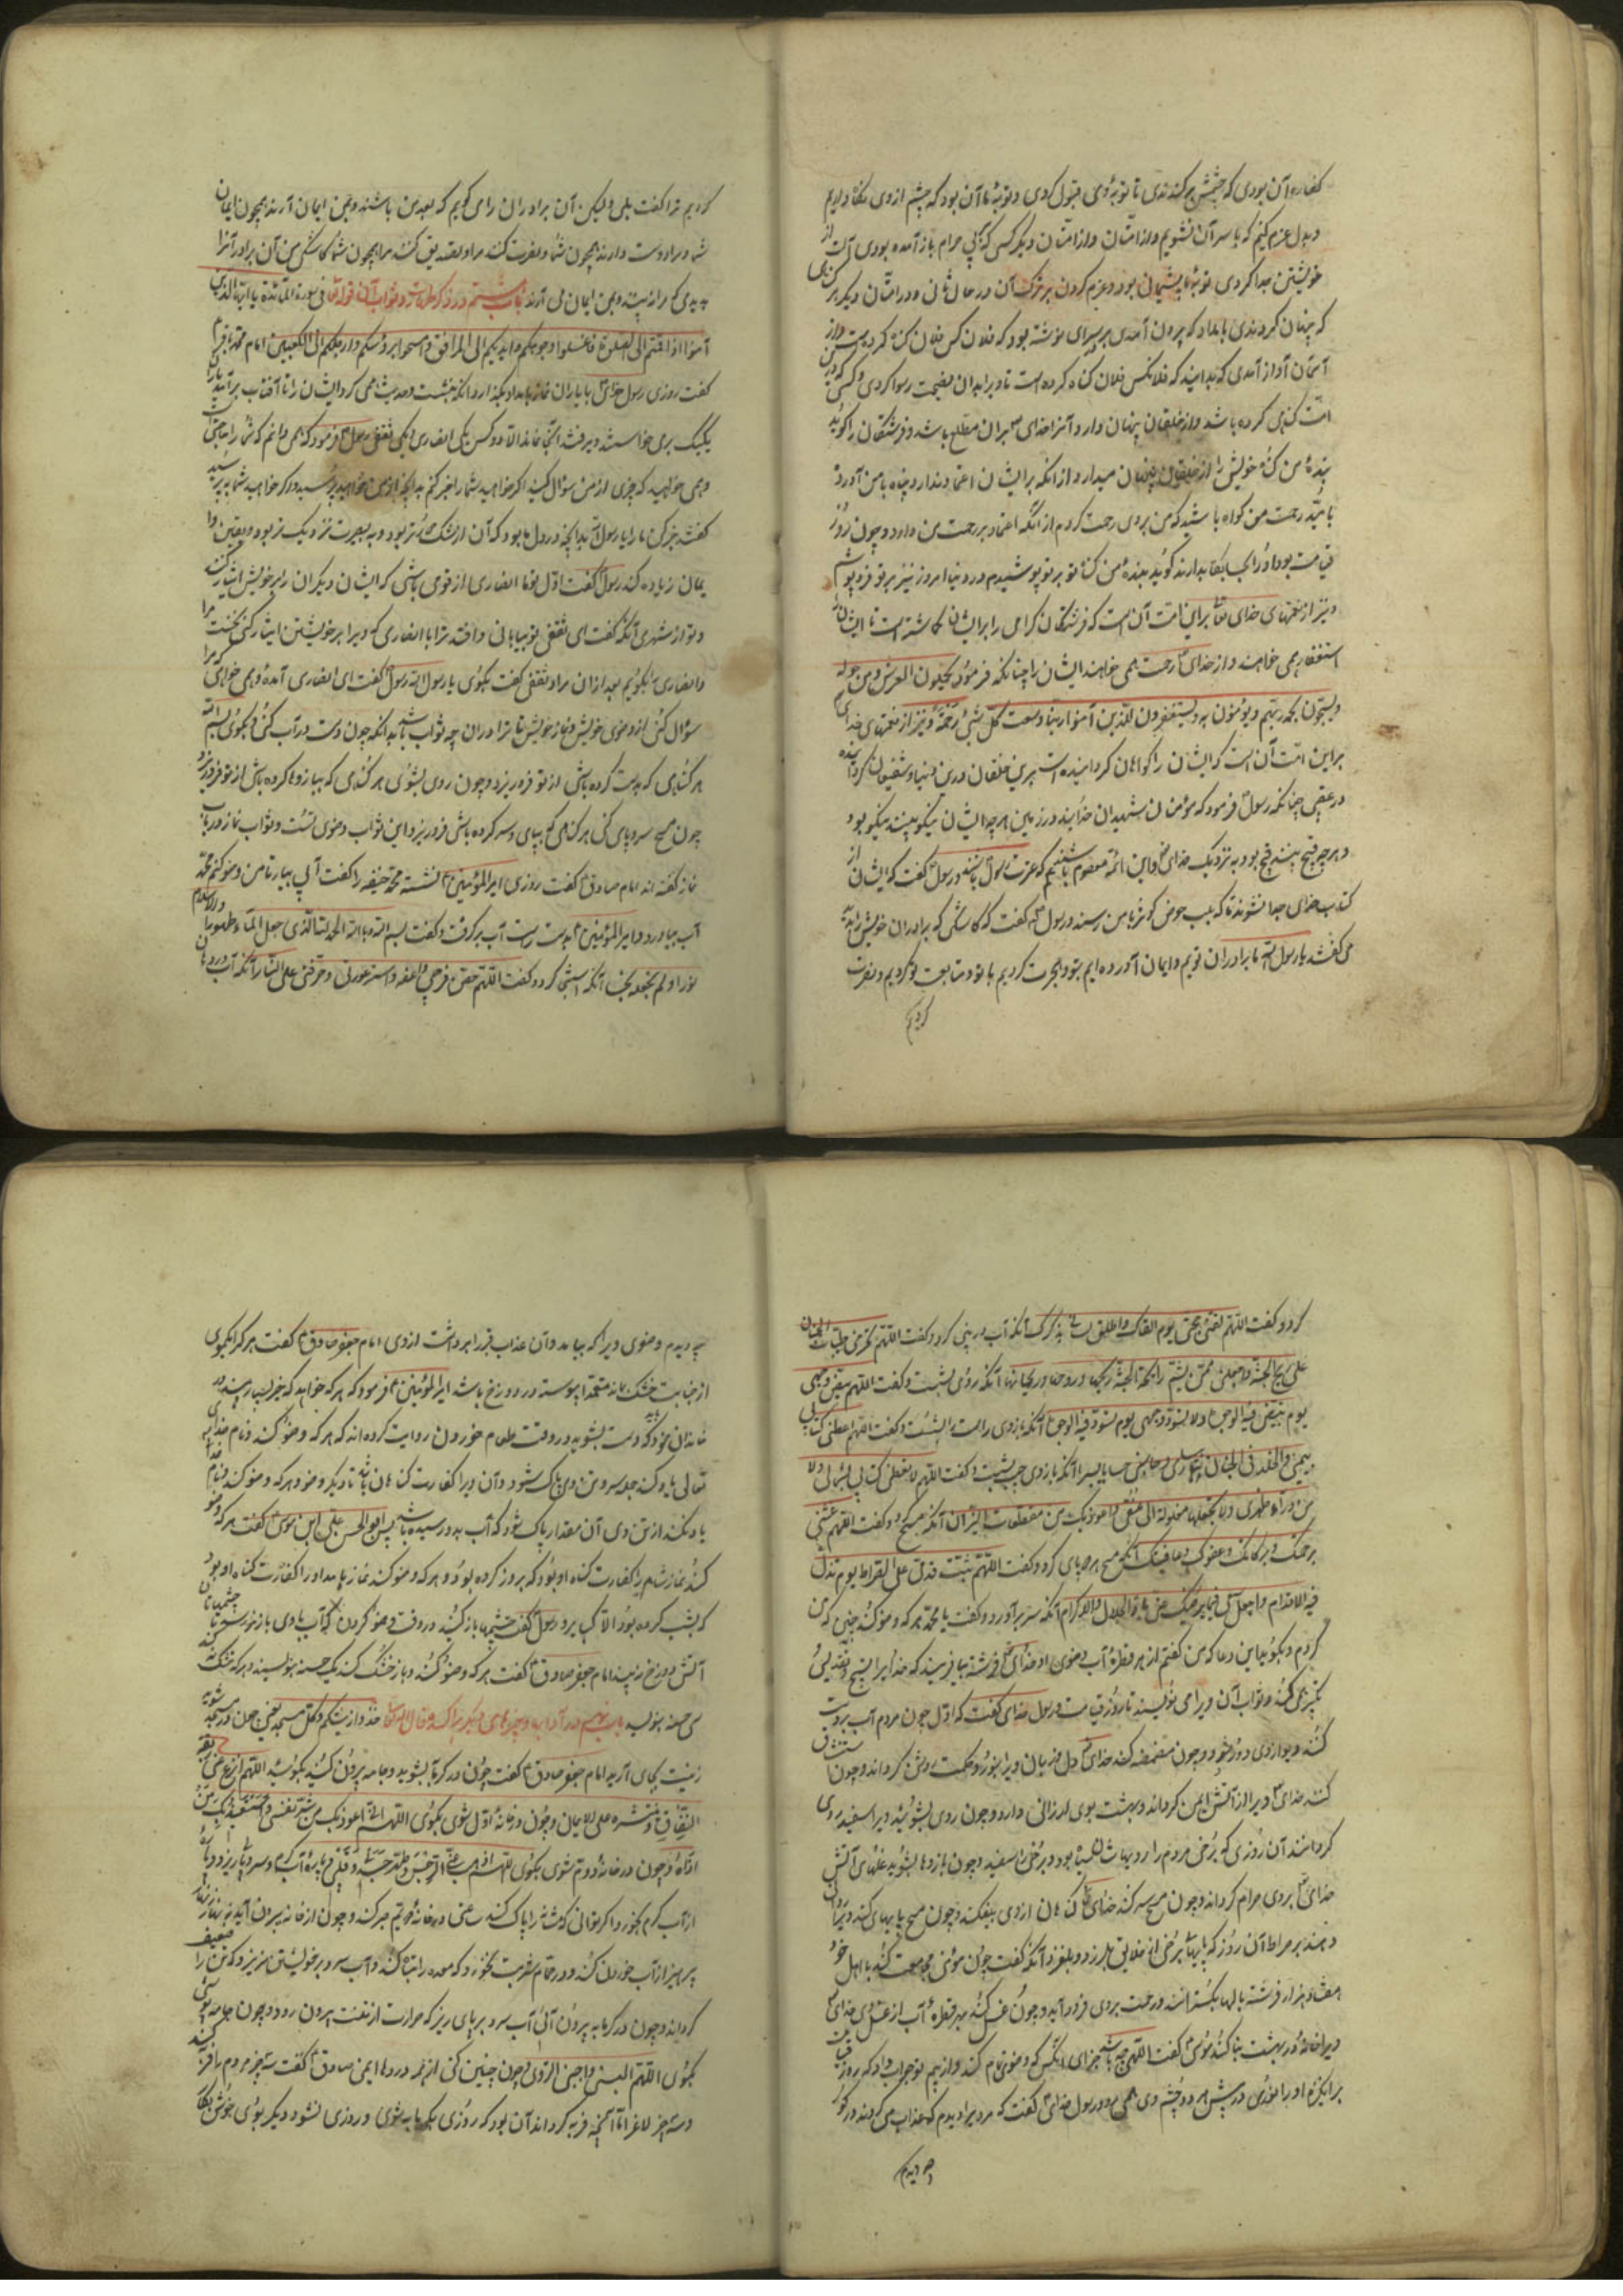 کفاره آن بودی که چشمش برکندندی تا توبه وی قبول کردی و توبه ما آن بود که چشم از وی نگاه داریم
و بدل عزم کنیم که با سر آن نشویم و از امتان و از امتان دیگر کسی که بی حرام باز آمده بودی آلت از
خویشتن جدا کردی توبه ما پشیمانی بود و عزم کردن بر ترک آن در حال شان و در امتان دیگر هر گناهی
که پنهان کردندی بامداد که بیرون آمدی بر سرای نوشته بود که فلان کس فلان گنه کردست و از
آسمان آواز آمدی که بدانید که فلانکس فلان گناه کرده است تا وی را بدان فضیحت رسوا کردی و کسی که درین
امت گناهی کرده باشد و از خلقان پنهان دارد و آنرا خدای بر آن مطلع باشد و فرشتگان را گوید
بنده من گنه خویش را از خلقان پنهان میدارد از انکه بر ایشان اعتماد ندارد و پناه با من آورد
بامید رحمت من گواه باشید که من بر وی رحمت کردم از آنکه اعتماد بر رحمت من دارد و چون روز
قیامت بود او را بحساب بدارند گوید بنده من گناه تو بر تو پوشیدم در دنیا امروز نیز بر تو فرو پوشم
و نیز از نعمتهای خدای تعالی بر این امت آن است که فرشتگان گرامی را بر ایشان گماشته است تا ایشان را
استغفار همی خواهند و از خدای رحمت همی خواهند ایشان را چنانکه فرمود یحملون العرش و من حوله
و یسبحون بحمد ربهم و یؤمنون به و یستغفرون للذین آمنوا ربنا وسعت کل شیء رحمة و نیز از نعمتهای خدای
بر این امت آن است که ایشان را گواهان گردانیده است برین خلقان درین دنیا و شفیعان گردانیده
در عقبی چنانکه رسول فرمود که مؤمنان شهیدان خدایند در زمین هر چه ایشان نیکو بینند نیکو بود
و هر چه قبیح بینند قبیح بود به نزدیک خدای و این ائمه معصوم باشند که عترت رسول باشند و رسول گفت که ایشان از
کتاب خدای جدا نشوند تا که بلب حوض کوثر با من رسند و رسول گفت که کاشکی که برادران خویش را بدیدمی
گفتند یا رسول الله ما برادران توییم و ایمان آورده ایم بتو و هجرت کردیم با تو و متابعت تو کردیم و نصرت
کردیم
کردیم ترا گفت بلی ولیکن آن برادران را می گویم که بعد من باشند و بمن ایمان آرند همچون ایمان
شما و مرا دوست دارند همچون شما و نصرت کنند مرا و تصدیق کنند مرا همچون شما کاشکی من آن برادر آنرا
بدیدی که مرا نبینند و بمن ایمان می آرند باب بیستم در ذکر طهارت و ثواب آن قوله تعالی فی سورة المائدة یا ایها الذین
آمنوا اذا قمتم الی الصلوة فاغسلوا وجوهکم و ایدیکم الی المرافق و امسحوا برؤسکم و ارجلکم الی الکعبین امام محمد باقر
گفت روزی رسول خدای با یاران نماز بامداد بگذارد و انکه بنشست و حدیث همی کرد ایشان را تا آفتاب بر آمد یاران
یکیک برمی خواستند و میرفتند تا آنجا نماند الا دو کس یکی انصاری و یکی ثقفی رسول فرمود که می دانم که شما را حاجتی است
و می خواهید که چیزی از من سؤال کنید اگر خواهید شما را خبر کنم بدانچه از من خواهید پرسید و اگر خواهید شما بپرسید
گفتند خبر کن ما را یا رسول الله بدانچه در دل ما بود که آن از شک دورتر بود و به بصیرت نزدیک تر بود و یقین را
ایمان زیاده کند رسول گفت اول تو یا انصاری از قومی باشی که ایشان دیگران را بر خویش ایثار کنند
و تو از شهری آنگاه گفت ای ثقفی تو بیابانی واقع ترا با انصاری که ویرا بر خویشتن ایثار کنی نخست مرا
و انصاری را بگویم بعد از آن مراد ثقفی گفت بگوی یا رسول الله رسول گفت ای انصاری آمده و می خواهی که مرا
سؤال کنی از وضوی خویش و نماز خویش تا ترا در آن چه ثواب باشد بدانکه چون دست در آب کنی و بگوی بسم الله
هر گناهی که بدست کرده باشی از تو فرو ریزد و چون روی بشوی هر گناهی که بباز و ها کرده باشی از تو فرو ریزد
چون مسح سر و پای کنی هر گناهی که بپای و سر کرده باشی فرو ریزد این ثواب وضوی تست و ثواب نماز در باب
نماز گفته اند امام صادق گفت روزی امیر المؤمنین نشسته محمد حنیفه را گفت آبی بیار تا من وضو کنم محمد
آب بیاورد و امیر المؤمنین بدست راست آب بر گرفت و گفت بسم الله و بالله الحمد لله الذی جعل الماء طهورا
نورا و لم یجعله نجسا آنگه استنجا کرد و گفت اللهم حصن فرجی و اعفه و استر عورتی و حرمنی علی النار آنگه آب در دهان
کرد و گفت اللهم لقنی حجتی یوم القاک و اطلق لسانی بذکرک آنگه آب در بینی کرد و گفت اللهم لا تحرمنی طیبات الجنان
علی ریح الجنة و اجعلنی ممن یشم رائحة الجنة ریحها و روحها و ریحانها آنگه روی بشست و گفت اللهم بیض وجهی
یوم تبیض فیه الوجوه و لا تسود وجهی یوم تسود فیه الوجوه آنگه بازوی راست را بشست و گفت اللهم اعطنی کتابی
بیمینی و الخلد فی الجنان بیساری و حاسبنی حسابا یسیرا آنگه بازوی چپ بشست و گفت اللهم لا تعطنی کتابی بشمالی و لا
من وراء ظهری و لا تجعلها مغلولة الی عنقی و اعوذ بک من مقطعات النیران آنگه مسح کرد و گفت اللهم غشنی
برحمتک و برکاتک و عفوک و عافیتک آنگه مسح بر پای کرد و گفت اللهم ثبت قدمی علی الصراط یوم تزل
فیه الاقدام و اجعل سعیی فیما یرضیک عنی یا ذا الجلال و الاکرام آنگه سر بر آورد و گفت یا محمد هر که وضو کند چنین که من
کردم و بگوید این دعا که من گفتم از هر قطره آب وضوی او خدای فرشته بیافریند که خدا یرا تسبیح و تقدیس
تکبیر می کند و ثواب آن ویرا می نویسند تا روز قیامت و رسول خدای گفت که اول چون مردم آب بر دست
کنند دیو ازوی دور شود و چون مضمضه کند خدای دل و زبان ویرا بنور و حکمت روشن گرداند و چون استنشاق
کند خدای ویرا از آتش ایمن گرداند و بهشت بوی ارزانی دارد و چون روی بشوید ویرا سفید روی
گردانند آن روزی که برخی مردم را روی سیاه بود و برخی را سفید و چون بازوها بشوید غلهای آتش
خدای بر وی حرام گرداند و چون مسح سر کند خدای گناهان از وی بیفکند و چون مسح پایها کند ویرا روان
دهند بر صراط آن روز که پایها برخی از خلایق بلرزد و بلغزد آنگه گفت چون مؤمن مجامعت کند با اهل خود
هفتاد هزار فرشته بالها بگسترانند و رحمت بروی فرود آید و چون غسل کند بهر قطره آب از غسل وی خدای
ویرا خانه در بهشت بنا کند موسی گفت الهی چه باشد جزای آنکس که وضوی تمام کند و از بیم تو جواب داد که روز قیامت
بر انگیزم او را نوری در پیش هر دو چشم وی همی رود و رسول خدای گفت که مردیرا دیدم که عذاب می کردند در گور
چه دیدم
چه دیدم وضوی ویرا که بیامد و آن عذاب قبر را برداشت ازوی امام جعفر صادق گفت هر که را یک موی
از جنابت خشک بماند متعمدا پیوسته در دوزخ باشد امیر المؤمنین فرمود که هر که خواهد که خیر بسیار بیند در
خاندان خود گو دست بشوید در وقت طعام خوردن روایت کرده اند که هر که وضو کند و نام خدای
تعالی یاد کند جمله سر و تن وی پاک شود و آن ویرا کفارت گناهان باشد تا دیگر وضو و هر که وضو کند و نام خدا
یاد نکند از تن وی آن مقدار پاک شود که آب بدو رسیده باشد پس ابو الحسن علی ابن موسی گفت هر که وضو
کند نماز شام را کفارت گناه او بود که بروز کرده بود و هر که وضو کند نماز بامداد را کفارت گناه او بود
که بشب کرده بود الا کبایر و رسول گفت چشمها باز کنید در وقت وضو کردن که آب با وی باز خورد تا چشمها تان
آتش دوزخ نبیند امام جعفر صادق گفت هر که وضو کند و باز خشک کند یک حسنه بنویسند و هر که خشک نکند
سی حسنه بنویسند باب در آداب و چیزهای دیگر قال الله تعالی خذوا زینتکم عند کل مسجد یعنی چون در مسجد شوید
زینت بجای آرید امام جعفر صادق گفت چون در گرمابه شوید و جامه بیرون کنید بگوئید اللهم انزع عنی ربقة
النفاق و ثبتنی علی الایمان و چون در خانه اول شوی بگوی اللهم انی اعوذ بک من شر نفسی و استعیذ بک من
اذاه و چون در خانه دوم شوی بگوی اللهم اذهب عنی الرجس النجس و طهر جسدی و قلبی و پاره آب گرم و سر و پا ریز
از آب گرم بخور و اگر توانی که مثانه را پاک کند ساعتی در خانه دوم صبر کند و چون از خانه سیم بیرون آید
پرهیز از آب خوردن کند و در حمام شربت نخورد که معده را تباه کند و آب سرد بر خویشتن مریز که تن را ضعیف
گرداند و چون در گرمابه بیرون آئی آب سرد بر پای ریز که حرارت از تنت بیرون رود و چون جامه پوشی
بگوی اللهم البسنی و اجنبنی الردی و چون چنین کنی از هر دردها ایمنی صادق گفت سه چیز مردم را فربه کند
و سه چیز لاغر اما آنچه فربه گرداند آن بود که روزی بگرمابه شوی و روزی نشود و دیگر بوی خوش